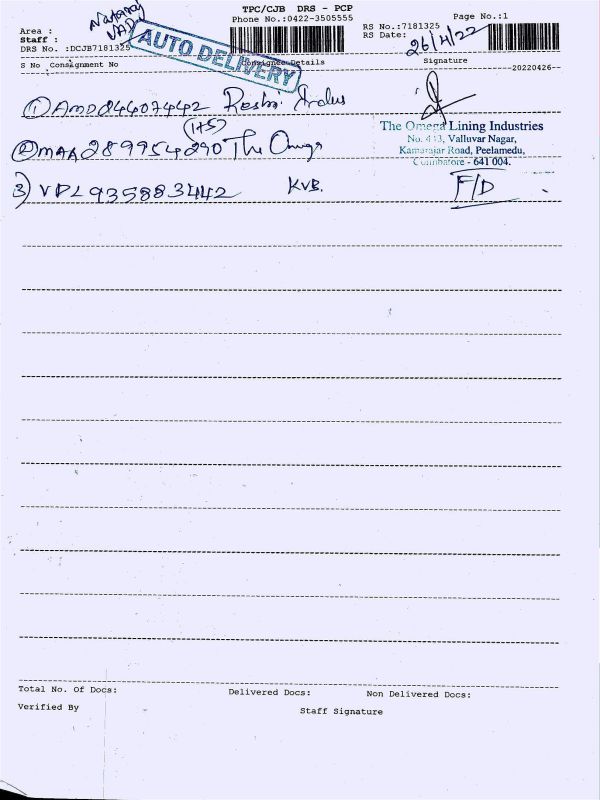 TPC/CJB DRS - PCP
Phone No.:0422-3505555
Page No.:1
Area :
Staff :
DRS No. :DCJB7181325
AUTO DELIVERY
RS No.:7181325
RS Date:
26/4/22
S No Consignment No
Consignee Details
Signature
--20220426--
① AMD 84407442
② MAA 289954290 The Omega
(1+5)
The Omega Lining Industries
Valluvar Nagar,
Kamarajar Road, Peelamedu,
Coimbatore - 641 004.
3) VPL 935883442 KVB.
F/D
Total No. Of Docs:
Delivered Docs:
Non Delivered Docs:
Verified By
Staff Signature